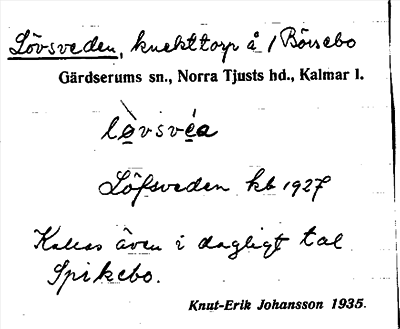 Lövsveden, knekttorp å / Börsebo
Gärdserums sn., Norra Tjusts hd., Kalmar l.
lòvsvéa
Löfsveden kb 1927
Kallas även i dagligt tal
Spikebo.
Knut-Erik Johansson 1935.